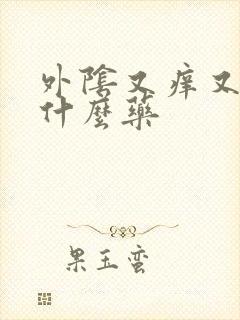 外陰又痒又
什麼藥
果玉蛮